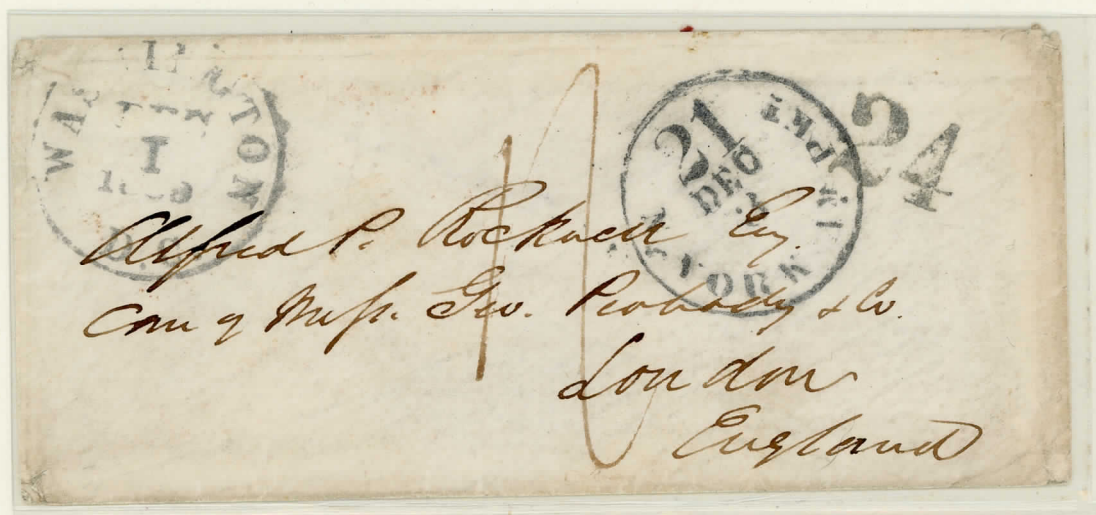 WASHINGTON
I
D.C.
21
DEC
YORK
PKT
24
Alfred P. Rockwell Esq.
Care of Mess. Geo. Peabody & Co.
London
England